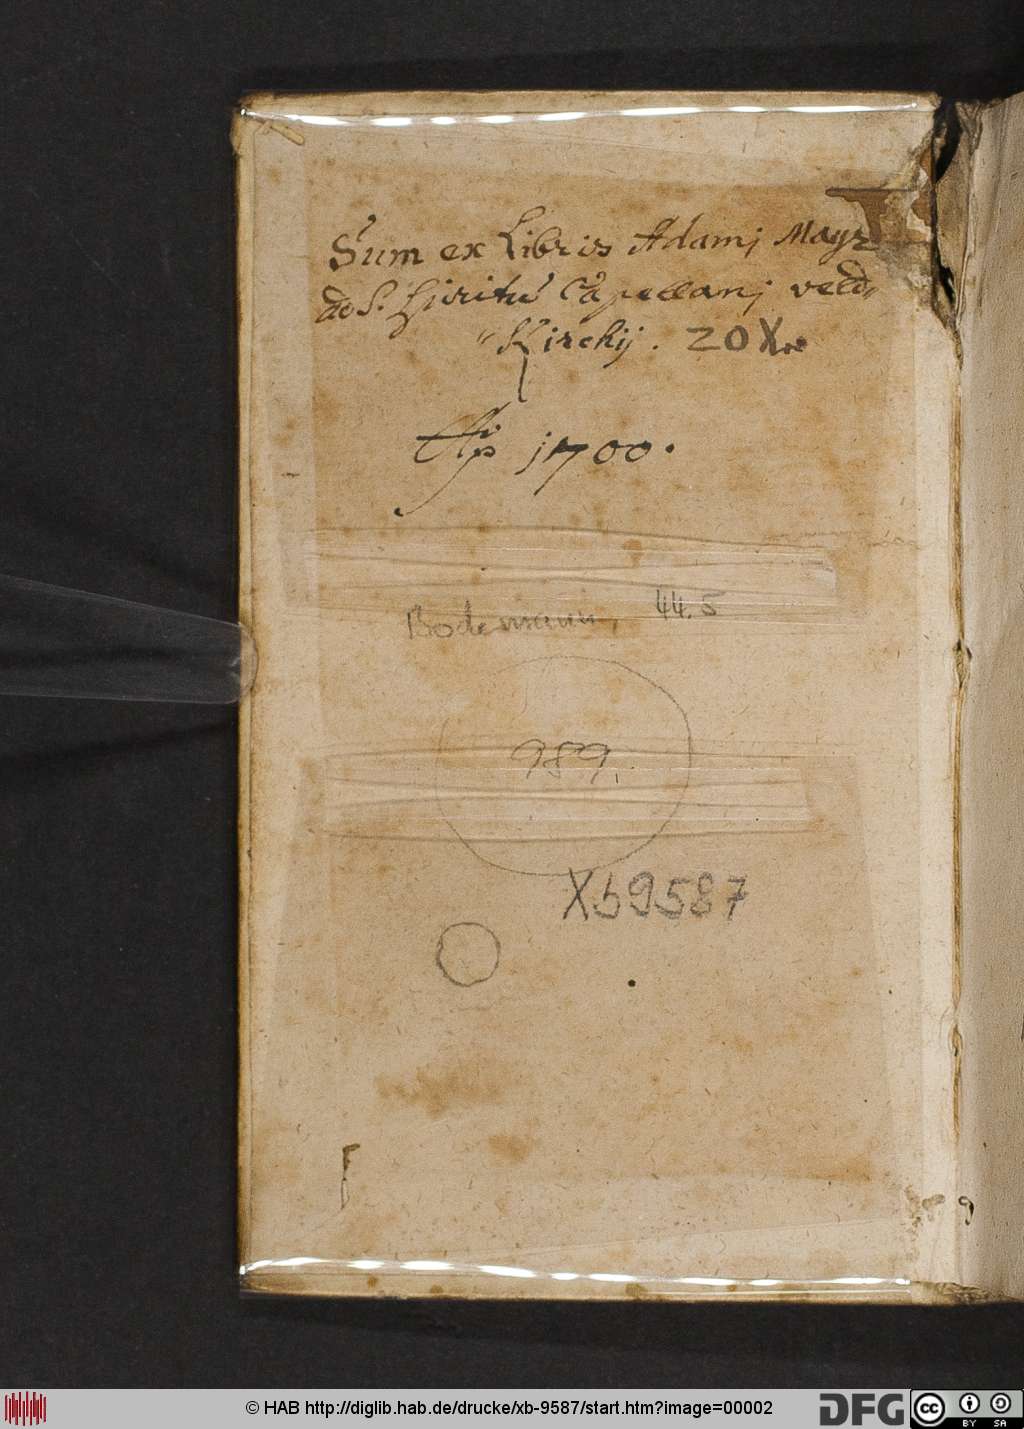 Sum ex Libris Adamj Mayr
ad S. Spiritū Capellanj veld,,
,,Kirchij. 20 Xre
Aō 1700.
Bodemann, 44.5
989.
Xb9587
© HAB http://diglib.hab.de/drucke/xb-9587/start.htm?image=00002
DFG
cc BY SA